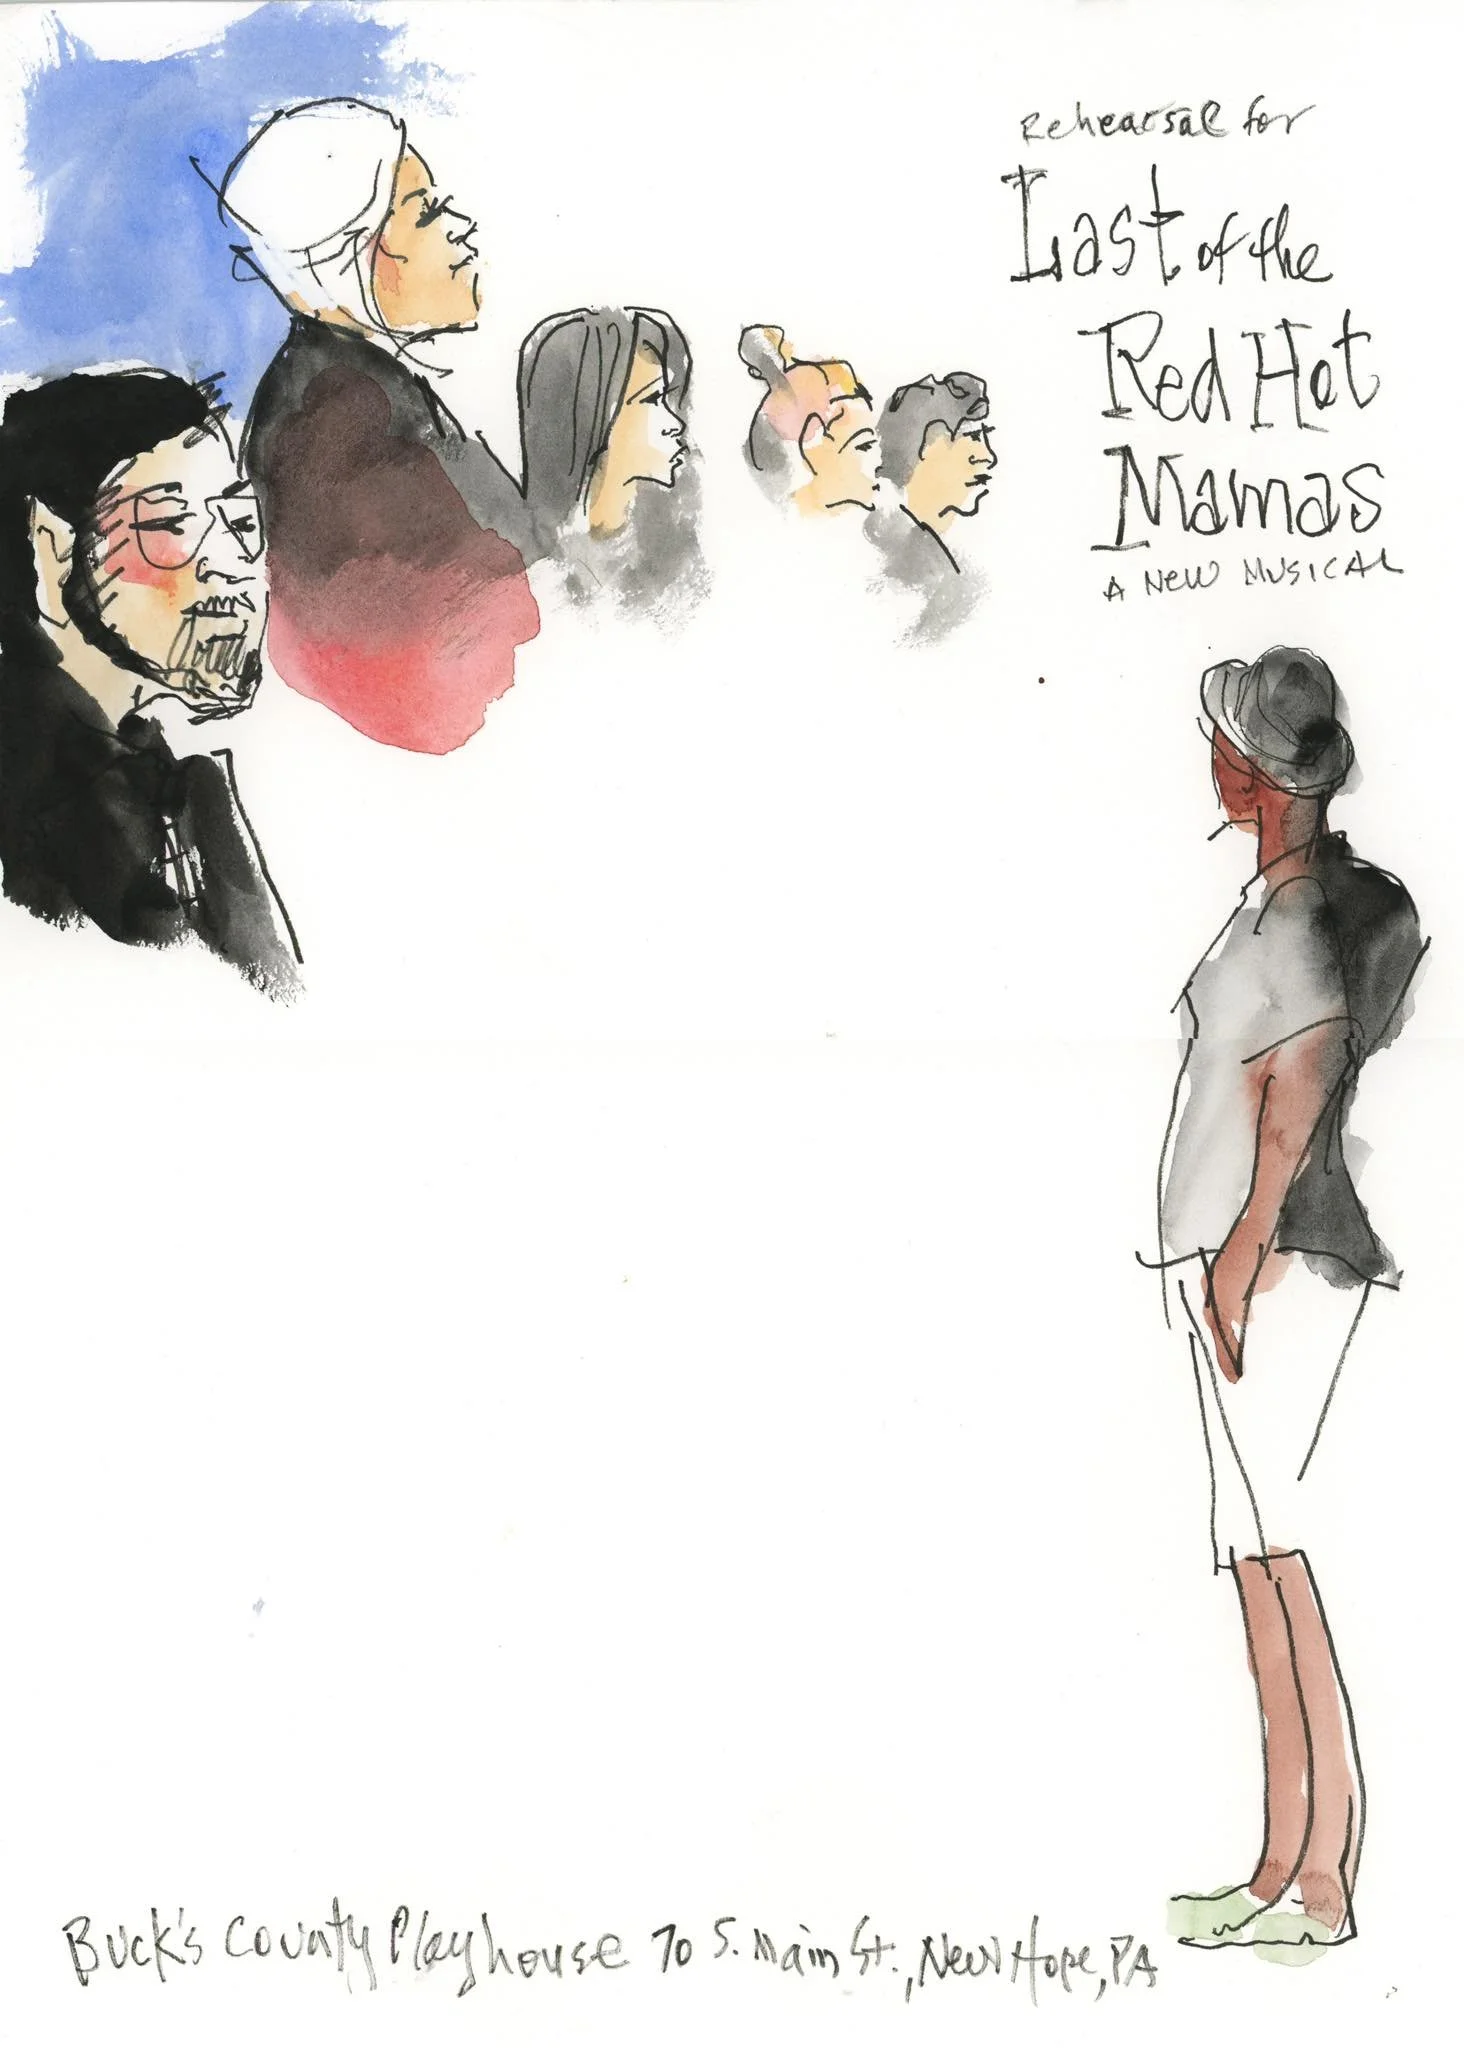 Rehearsal for
Last of the
Red Hot
Mamas
A New Musical
Buck's County Playhouse 70 S. Main St., New Hope, PA